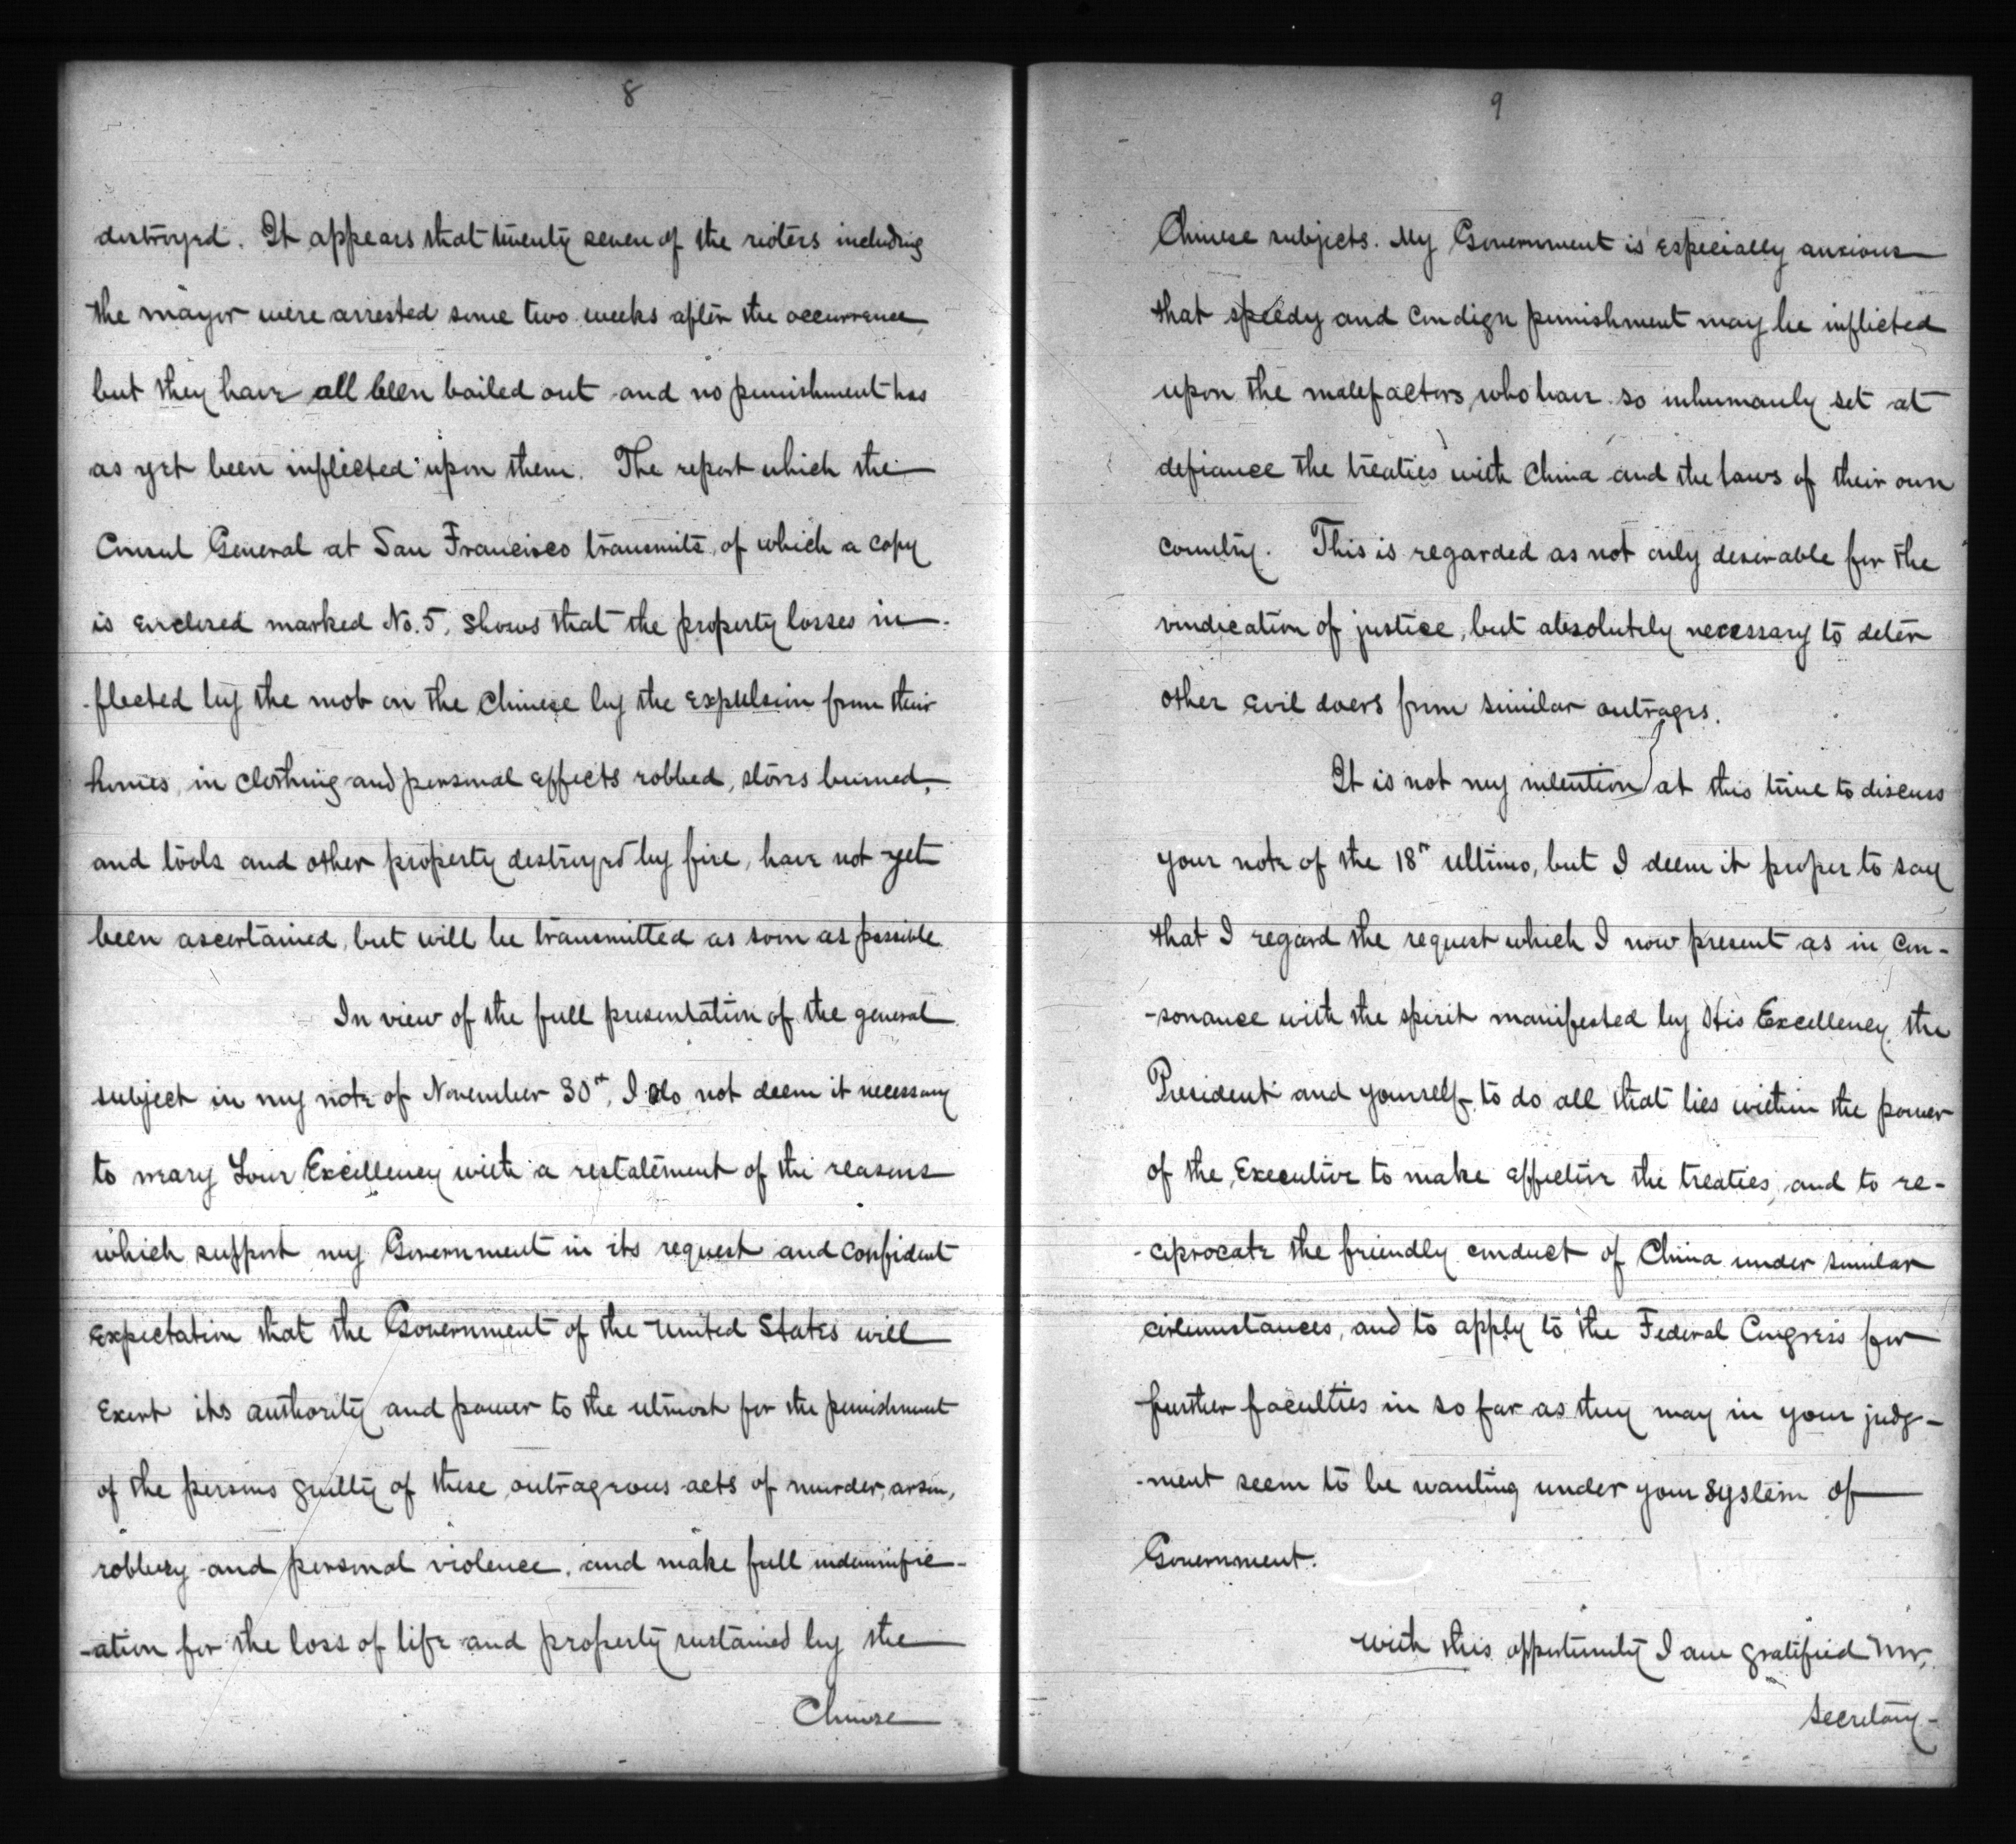 8
destroyed. It appears that twenty seven of the rioters including
the mayor were arrested some two weeks after the occurrence,
but they have all been bailed out and no punishment has
as yet been inflicted upon them. The report which the
Consul General at San Francisco transmits, of which a copy
is enclosed marked No. 5, shows that the property losses in-
-flicted by the mob on the Chinese by the expulsion from their
homes, in clothing and personal effects robbed, stores burned,
and tools and other property destroyed by fire, have not yet
been ascertained, but will be transmitted as soon as possible.
In view of the full presentation of the general
subject in my note of November 30th, I do not deem it necessary
to weary Your Excellency with a restatement of the reasons
which support my Government in its request and confident
expectation that the Government of the United States will
exert its authority and power to the utmost for the punishment
of the persons guilty of these outrageous acts of murder, arson,
robbery and personal violence, and make full indemnific-
-ation for the loss of life and property sustained by the
Chinese
9
Chinese subjects. My Government is especially anxious
that speedy and condign punishment may be inflicted
upon the malefactors, who have so inhumanly set at
defiance the treaties with China and the laws of their own
country. This is regarded as not only desirable for the
vindication of justice, but absolutely necessary to deter
other evil doers from similar outrages.
It is not my intention at this time to discuss
your note of the 18th ultimo, but I deem it proper to say
that I regard the request which I now present as in con-
-sonance with the spirit manifested by His Excellency the
President and yourself, to do all that lies within the power
of the Executive to make effective the treaties, and to re-
-ciprocate the friendly conduct of China under similar
circumstances, and to apply to the Federal Congress for
further faculties in so far as they may in your judg-
-ment seem to be wanting under your system of
Government.
With this opportunity I am gratified Mr.
Secretary-